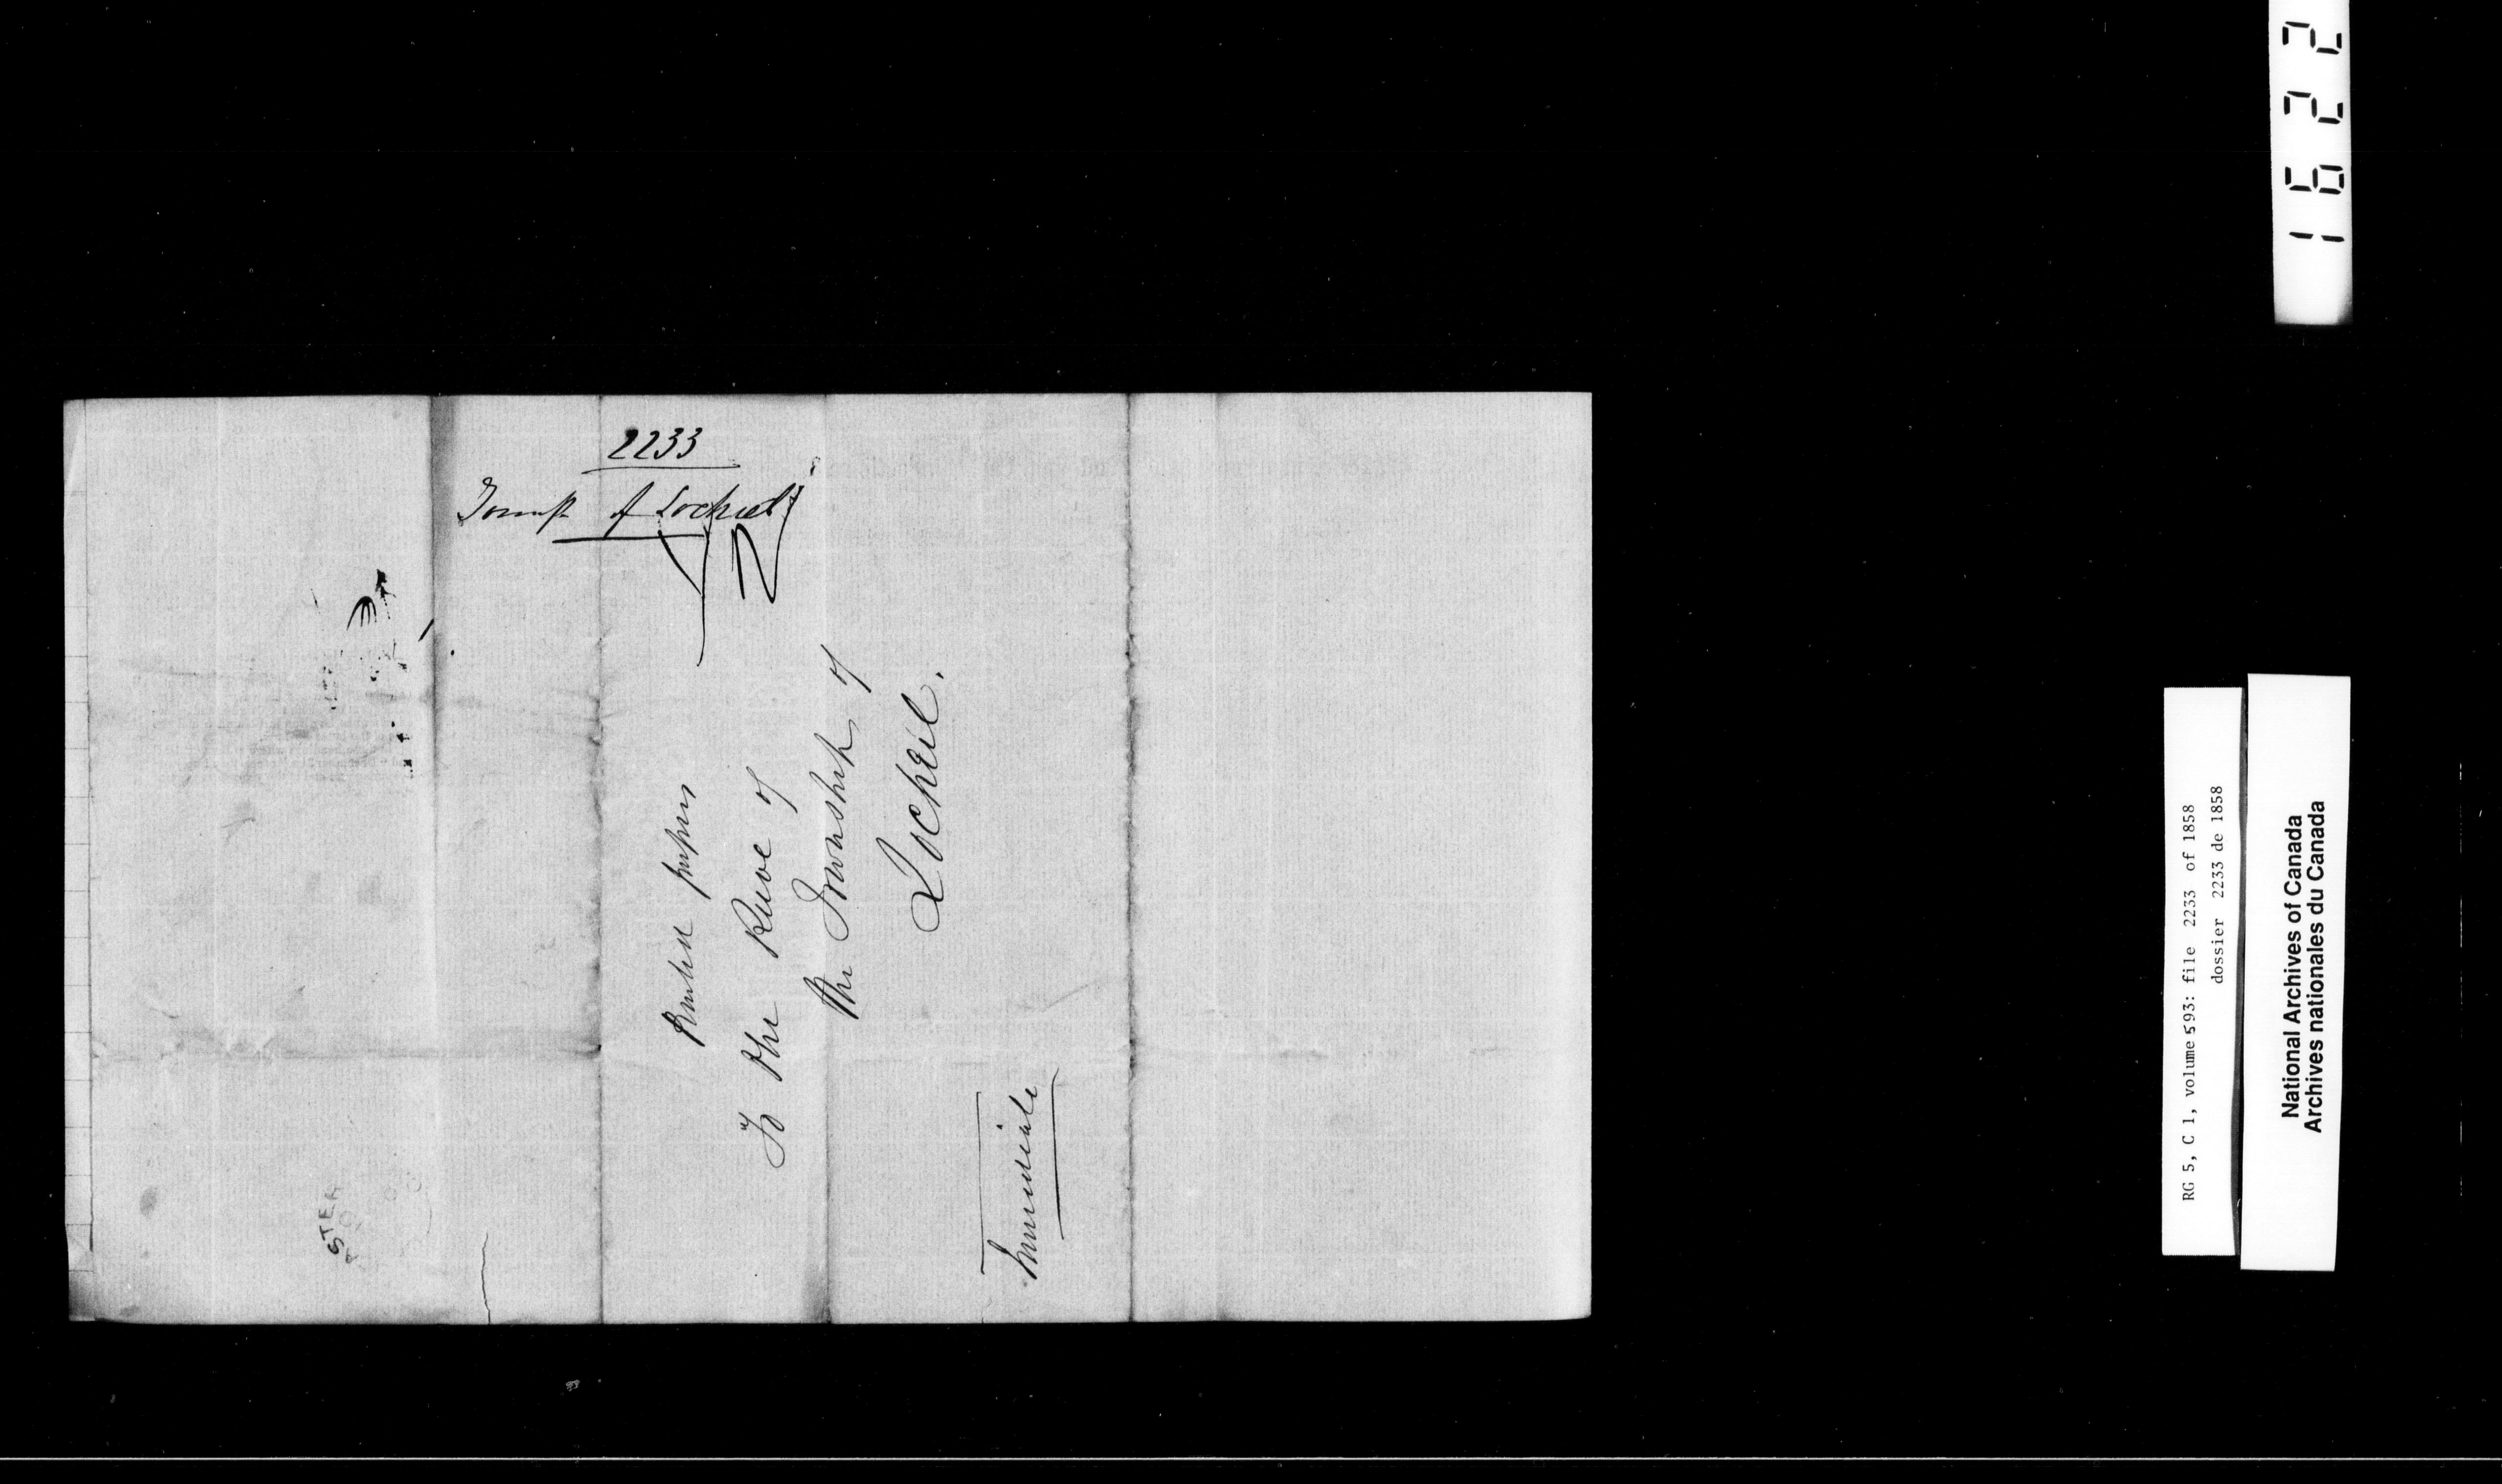 2233
Township of Lochiel
papers
To the Reeve of
the Township of
Locheil.
Immediate
STER
1622
RG 5, C 1, volume 593: file 2233 of 1858
dossier 2233 de 1858
National Archives of Canada
Archives nationales du Canada